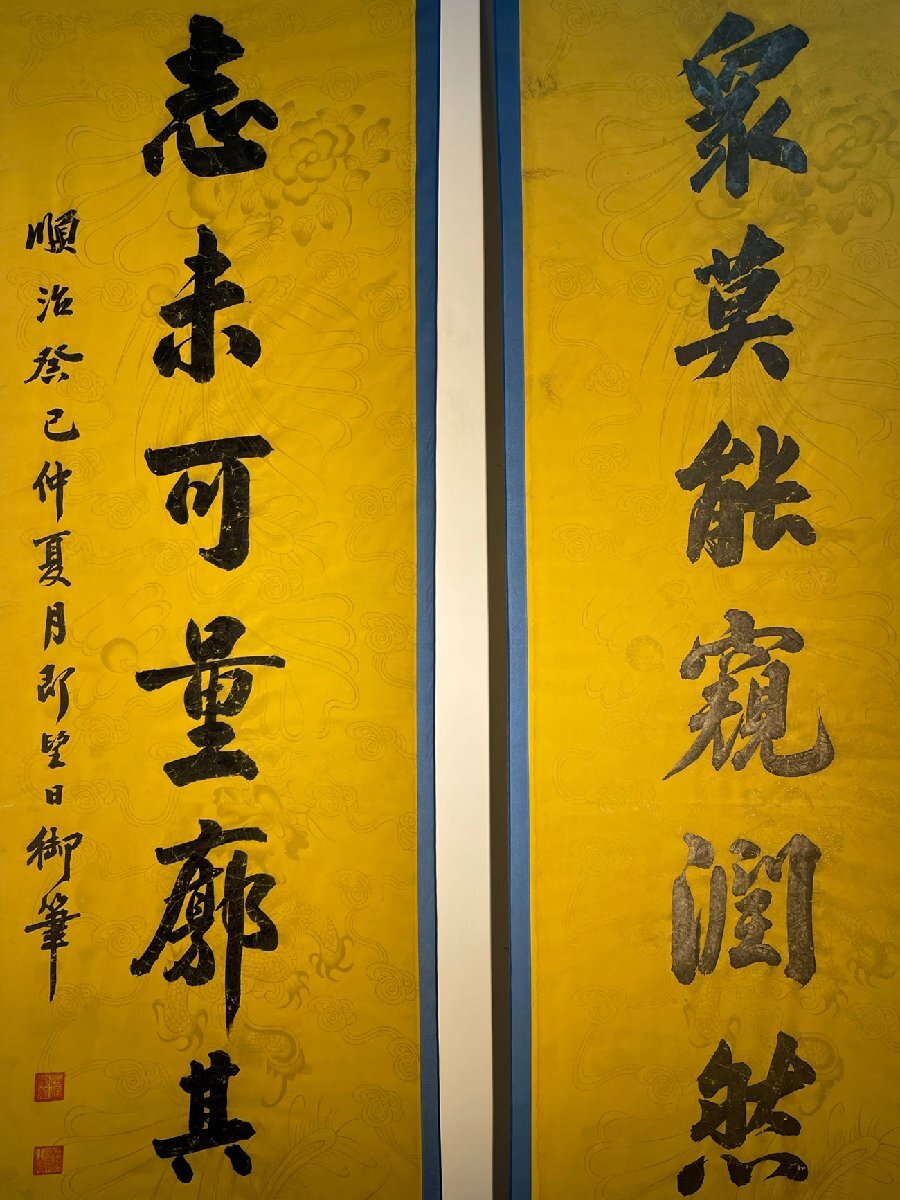 眾莫能窺潤然
志未可量廓其
順治癸巳仲夏月即望日御筆